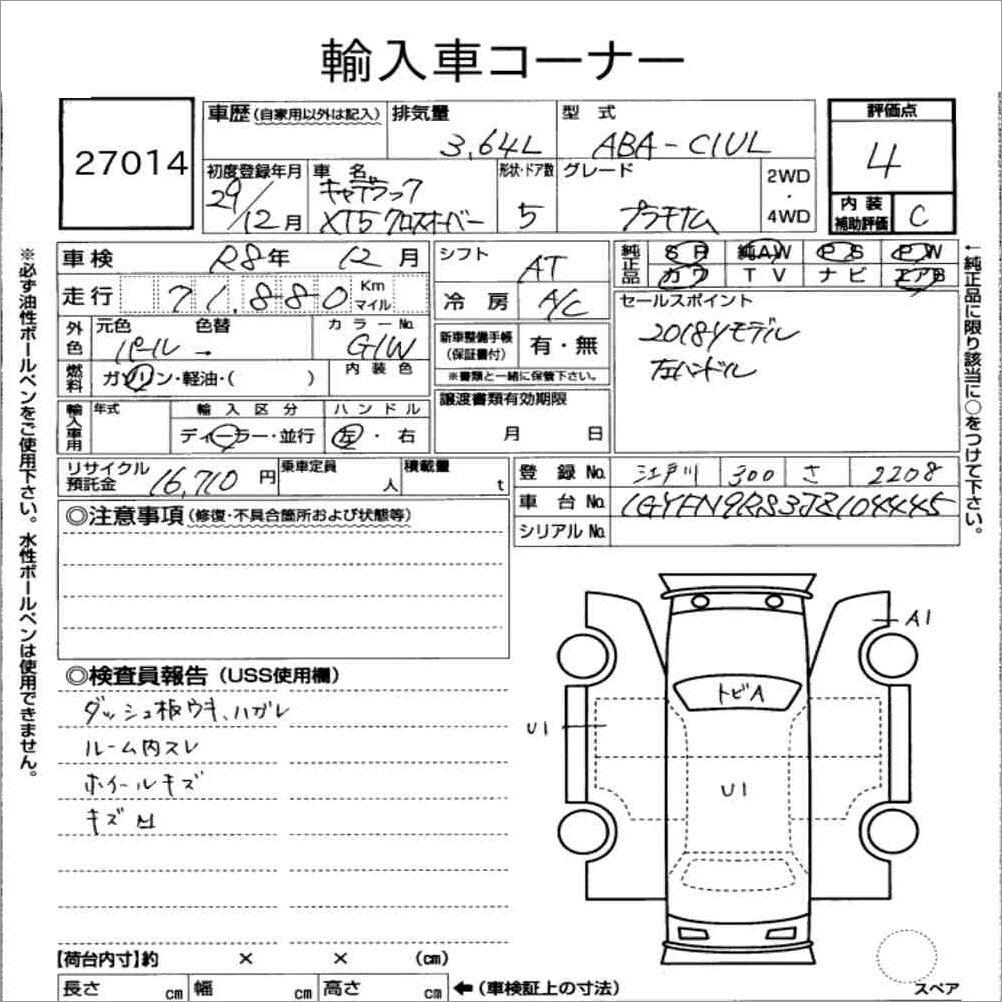 輸入車コーナー
27014
車歴(自家用以外は記入) 排気量 3.64L 型式 ABA-C1UL
評価点 4
初度登録年月 29/12月 車名 キャデラック XT5クロスオーバー 形状・ドア数 5 グレード プラチナム 2WD・4WD
内装補助評価 C
車検 R8年 12月
走行 71,880 Km マイル
外色 元色 パール 色替 → カラーNo. G1W
燃料 ガソリン・軽油・( ) 内装色
輸入車用 年式 輸入区分 ディーラー・並行 ハンドル 左・右
シフト AT
冷房 A/C
新車整備手帳(保証書付) 有・無
※書類と一緒に保管下さい。
譲渡書類有効期限
月 日
純正品 SR 純AW PS PW
カワ TV ナビ エアB
セールスポイント
2018yモデル
左ハンドル
リサイクル預託金 16,710円 乗車定員 人 積載量 t
登録No. 江戸川 300 さ 2208
車台No. 1GYFN9RS3JZ104445
シリアルNo.
◎注意事項(修復・不具合箇所および状態等)
◎検査員報告(USS使用欄)
ダッシュ板ウキ、ハガレ
ルーム内スレ
ホイールキズ
キズ凹
A1
トビA
U1
U1
スペア
【荷台内寸】約 × × (cm)
長さ cm 幅 cm 高さ cm ←(車検証上の寸法)
※必ず油性ボールペンをご使用下さい。水性ボールペンは使用できません。
←純正品に限り該当に○をつけて下さい。